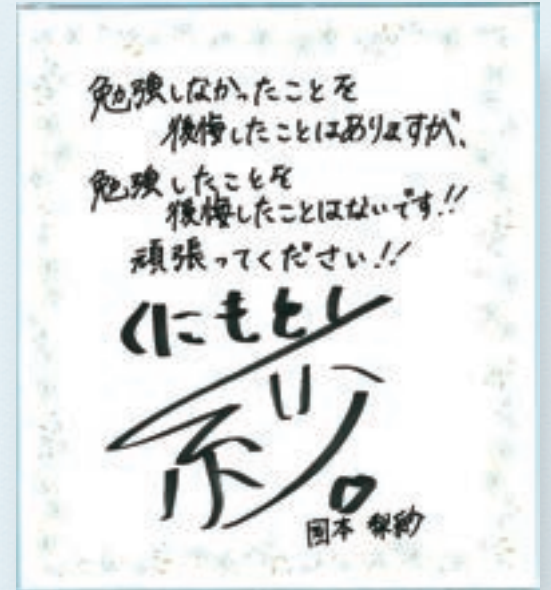 勉強しなかったことを
後悔したことはありますが、
勉強したことを
後悔したことはないです!!
頑張ってください!!
くにもとし
紗。
国本 梨紗